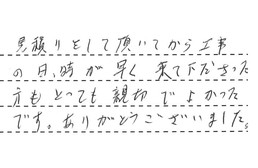 見積りをして頂いてから工事
の日、時が早く来て下ださった
方もとっても親切でよかった
です。ありがとうございました。